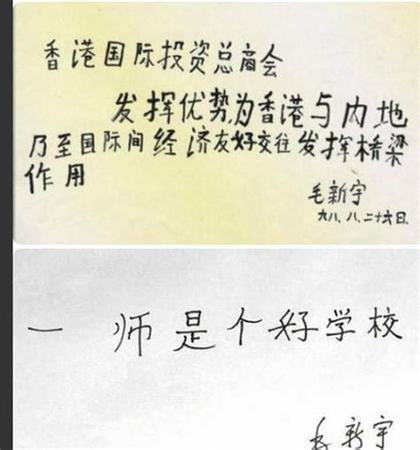 香港国际投资总商会
发挥优势,为香港与内地
乃至国际间经济友好交往发挥桥梁
作用
毛新宇
九八.八.二十六日.
一师是个好学校
毛新宇